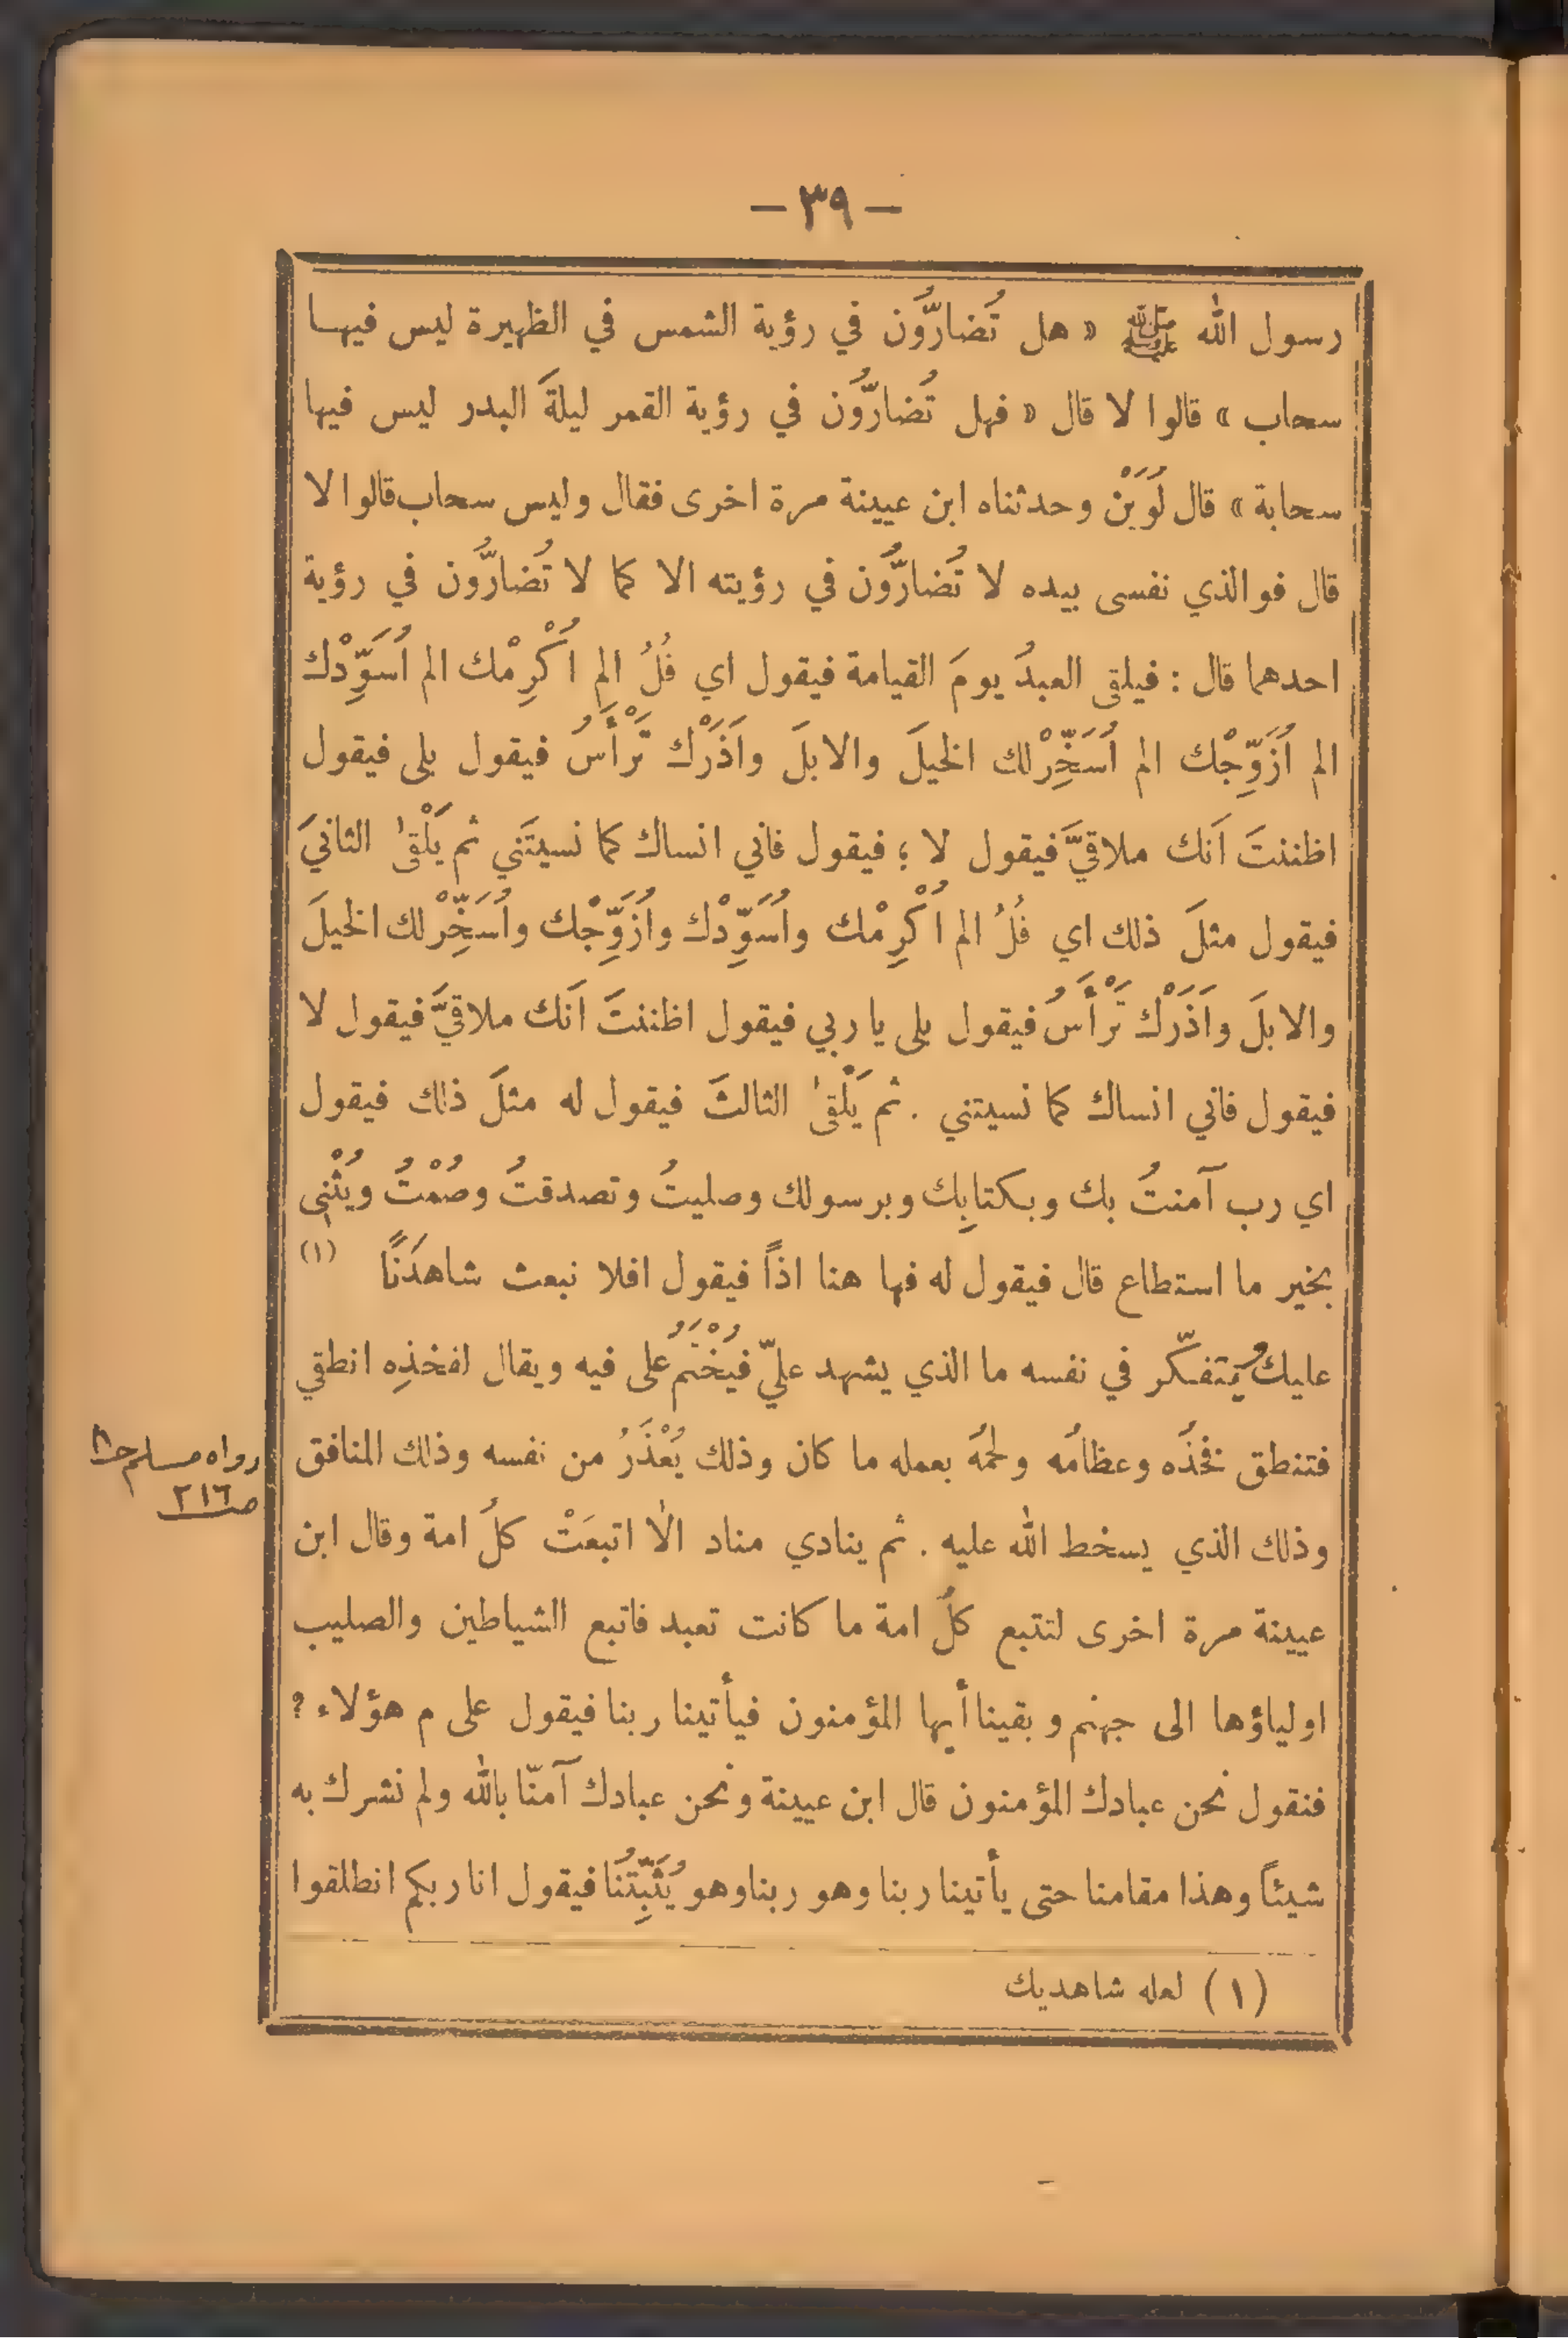 — ٣٩ —
رسول الله ﷺ « هل تُضارُّون في رؤية الشمس في الظهيرة ليس فيها
سحاب » قالوا لا قال « فهل تُضارُّون في رؤية القمر ليلةَ البدر ليس فيها
سحابة » قال لُوَيْن وحدثناه ابن عيينة مرة اخرى فقال وليس سحاب قالوا لا
قال فوالذي نفسى بيده لا تُضارُّون في رؤيته الا كما لا تُضارُّون في رؤية
احدهما قال : فيلقى العبدُ يومَ القيامة فيقول اي فُلُ الم اُكْرِمْك الم اُسَوِّدْك
الم اُزَوِّجْك الم اُسَخِّرْ لك الخيلَ والابلَ واَذَرْك تَرْأَسُ فيقول بلى فيقول
اظننتَ اَنك ملاقيَّ فيقول لا ؛ فيقول فاني انساك كما نسيتَني ثم يَلْقىٰ الثانيَ
فيقول مثلَ ذلك اي فُلُ الم اُكْرِمْك واُسَوِّدْك واُزَوِّجْك واُسَخِّرْ لك الخيلَ
والابلَ واَذَرْك تَرْأَسُ فيقول بلى يا ربي فيقول اظننتَ اَنك ملاقيَّ فيقول لا
فيقول فاني انساك كما نسيتني . ثم يَلْقىٰ الثالثَ فيقول له مثلَ ذلك فيقول
اي رب آمنتُ بك وبكتابِك وبرسولك وصليتُ وتصدقتُ وصُمْتُ ويُثْنِى
بخير ما استطاع قال فيقول له فها هنا اذاً فيقول افلا نبعث شاهدَنًا (١)
عليك يتفكّر في نفسه ما الذي يشهد عليّ فيُخْتَمُ على فيه ويقال لفخذِه انطقي
فتنطق فخذُه وعظامُه ولحمُه بعمله ما كان وذلك يُعْذَرُ من نفسه وذلك المنافق
وذلك الذي يسخط الله عليه . ثم ينادي مناد الا اتبعَتْ كلُ امة وقال ابن
عيينة مرة اخرى لتتبع كلُ امة ما كانت تعبد فاتبع الشياطين والصليب
اولياؤها الى جهنم وبقينا أيها المؤمنون فيأتينا ربنا فيقول على م هؤلاء ؟
فنقول نحن عبادك المؤمنون قال ابن عيينة ونحن عبادك آمنّا بالله ولم نشرك به
شيئاً وهذا مقامنا حتى يأتينا ربنا وهو ربنا وهو يُثَبِّتُنَا فيقول انا ربكم انطلقوا
(١) لعله شاهديك
رواه مسلم
ص ٢١٦